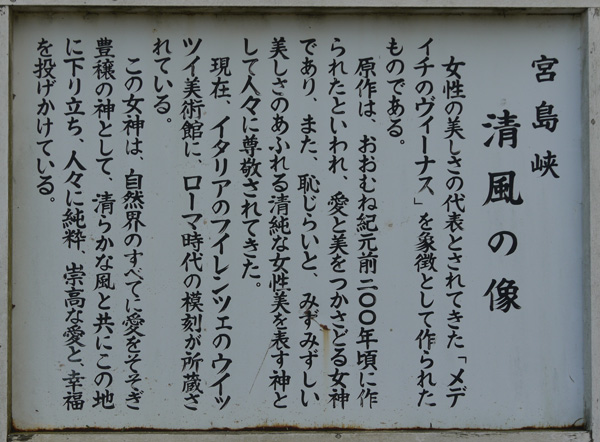 宮島峡
清風の像
女性の美しさの代表とされてきた「メデ
イチのヴィーナス」を象徴として作られた
ものである。
原作は、おおむね紀元前二〇〇年頃に作
られたといわれ、愛と美をつかさどる女神
であり、また、恥じらいと、みずみずしい
美しさのあふれる清純な女性美を表す神と
して人々に尊敬されてきた。
現在、イタリアのフイレンツェのウイッ
ツイ美術館に、ローマ時代の模刻が所蔵さ
れている。
この女神は、自然界のすべてに愛をそそぎ
豊穣の神として、清らかな風と共にこの地
に下り立ち、人々に純粋、崇高な愛と、幸福
を投げかけている。